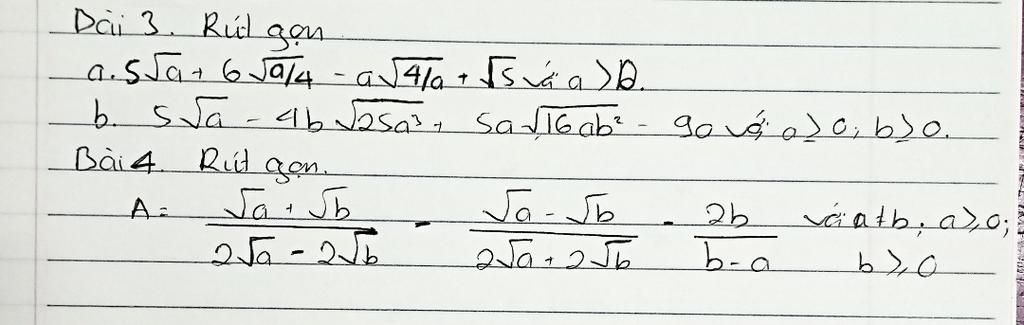 Bài 3. Rút gọn
a. 5√a + 6√a/4 - a√4/a + √5 với a > 0.
b. 5√a - 4b√25a³ + 5a√16ab² - 9a với a ≥ 0; b ≥ 0.
Bài 4. Rút gọn.
A = (√a + √b)/(2√a - 2√b) - (√a - √b)/(2√a + 2√b) - 2b/(b - a) với a ≠ b; a ≥ 0;
b ≥ 0